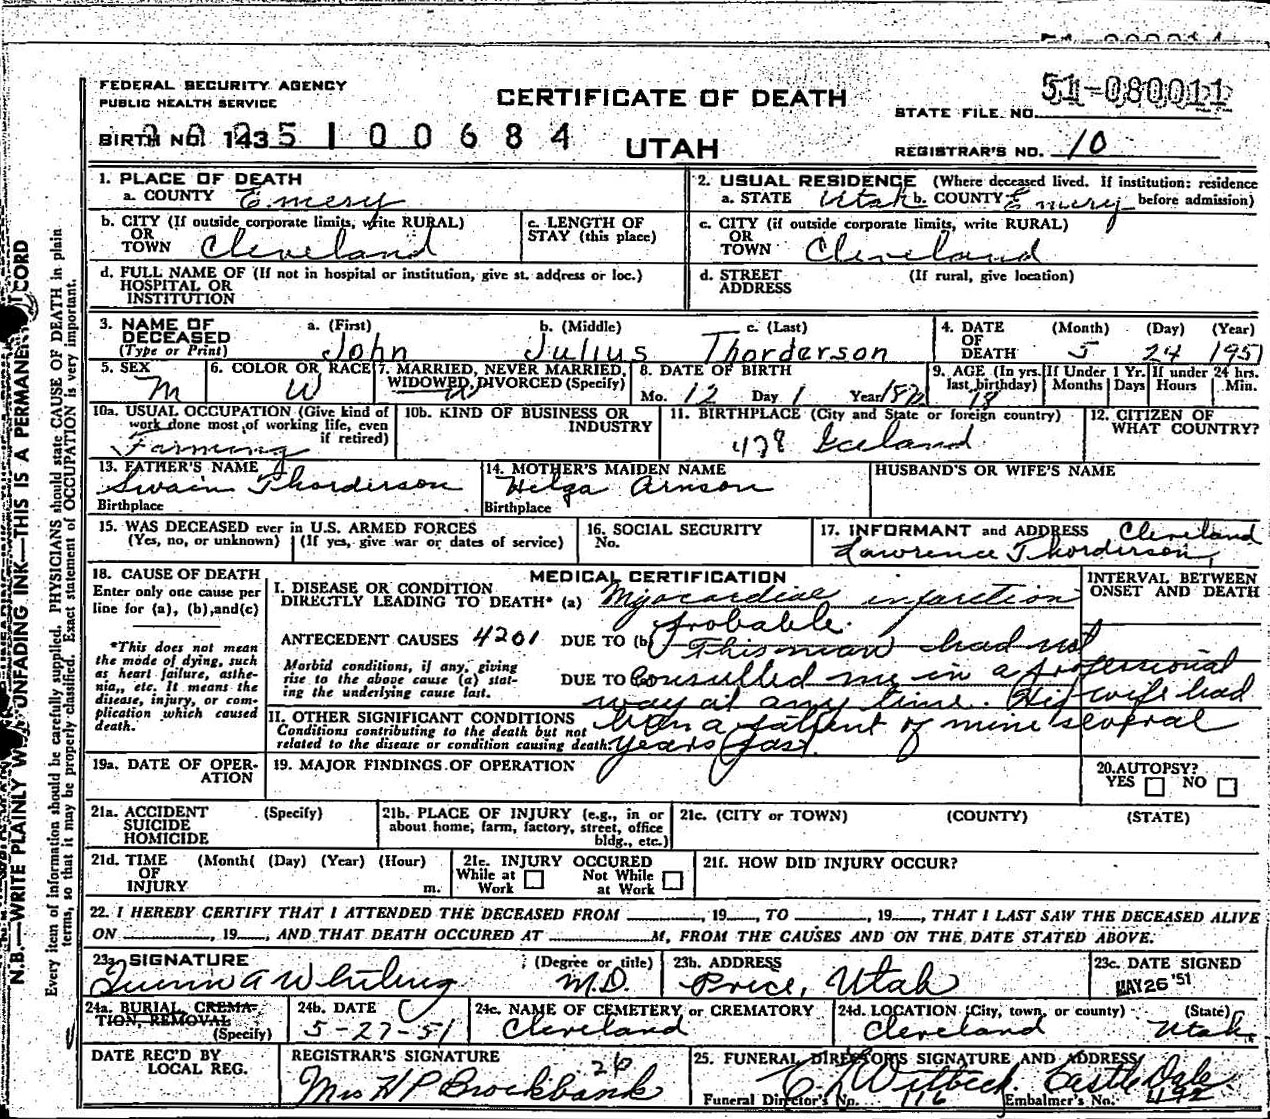 FEDERAL SECURITY AGENCY
PUBLIC HEALTH SERVICE
CERTIFICATE OF DEATH
STATE FILE NO. 51-080011
BIRTH NO. 143 5100684
UTAH
REGISTRAR'S NO. 10
1. PLACE OF DEATH
a. COUNTY Emery
2. USUAL RESIDENCE (Where deceased lived. If institution: residence before admission)
a. STATE Utah b. COUNTY Emery
b. CITY (If outside corporate limits, write RURAL) OR TOWN Cleveland
c. LENGTH OF STAY (this place)
c. CITY (if outside corporate limits, write RURAL) OR TOWN Cleveland
d. FULL NAME OF (If not in hospital or institution, give st. address or loc.) HOSPITAL OR INSTITUTION
d. STREET ADDRESS (If rural, give location)
3. NAME OF DECEASED (Type or Print)
a. (First) John
b. (Middle) Julius
c. (Last) Thorderson
4. DATE OF DEATH (Month) 5 (Day) 24 (Year) 1951
5. SEX M
6. COLOR OR RACE W
7. MARRIED, NEVER MARRIED, WIDOWED, DIVORCED (Specify) W
8. DATE OF BIRTH Mo. 12 Day 1 Year 1872
9. AGE (In yrs. last birthday) 78 If Under 1 Yr. Months Days If under 24 hrs. Hours Min.
10a. USUAL OCCUPATION (Give kind of work done most of working life, even if retired) Farming
10b. KIND OF BUSINESS OR INDUSTRY
11. BIRTHPLACE (City and State or foreign country) 478 Iceland
12. CITIZEN OF WHAT COUNTRY?
13. FATHER'S NAME Swain Thorderson
Birthplace
14. MOTHER'S MAIDEN NAME Helga Arnson
Birthplace
HUSBAND'S OR WIFE'S NAME
15. WAS DECEASED ever in U.S. ARMED FORCES
(Yes, no, or unknown) (If yes, give war or dates of service)
16. SOCIAL SECURITY No.
17. INFORMANT and ADDRESS Cleveland
Lawrence Thorderson,
18. CAUSE OF DEATH
Enter only one cause per line for (a), (b), and (c)
*This does not mean the mode of dying, such as heart failure, asthenia,, etc. It means the disease, injury, or complication which caused death.
MEDICAL CERTIFICATION
INTERVAL BETWEEN ONSET AND DEATH
I. DISEASE OR CONDITION DIRECTLY LEADING TO DEATH* (a) Myocardial infarction
probable.
ANTECEDENT CAUSES 4201 DUE TO (b) This man had not
Morbid conditions, if any, giving rise to the above cause (a) stating the underlying cause last.
DUE TO consulled me in a professional
way at any time. His wife had
II. OTHER SIGNIFICANT CONDITIONS been a patient of mine several
Conditions contributing to the death but not related to the disease or condition causing death. years past.
19a. DATE OF OPERATION
19. MAJOR FINDINGS OF OPERATION
20. AUTOPSY? YES NO
21a. ACCIDENT SUICIDE HOMICIDE (Specify)
21b. PLACE OF INJURY (e.g., in or about home, farm, factory, street, office bldg., etc.)
21c. (CITY or TOWN) (COUNTY) (STATE)
21d. TIME OF INJURY (Month( (Day) (Year) (Hour) m.
21e. INJURY OCCURED While at Work Not While at Work
21f. HOW DID INJURY OCCUR?
22. I HEREBY CERTIFY THAT I ATTENDED THE DECEASED FROM , 19 , TO , 19 , THAT I LAST SAW THE DECEASED ALIVE
ON , 19 , AND THAT DEATH OCCURED AT M, FROM THE CAUSES AND ON THE DATE STATED ABOVE.
23a. SIGNATURE Quinn A Whiting (Degree or title) M.D.
23b. ADDRESS Price, Utah
23c. DATE SIGNED MAY 26 '51
24a. BURIAL, CREMATION, REMOVAL (Specify)
24b. DATE 5-27-51
24c. NAME OF CEMETERY or CREMATORY Cleveland
24d. LOCATION (City, town, or county) (State) Cleveland Utah
DATE REC'D BY LOCAL REG.
REGISTRAR'S SIGNATURE 26
Mrs H P Brockbank
25. FUNERAL DIRECTOR'S SIGNATURE AND ADDRESS
Witbeck. Castle Dale
Funeral Director's No. 116 Embalmer's No. 432
N.B.—WRITE PLAINLY W UNFADING INK—THIS IS A PERMANENT CORD
Every item of information should be carefully supplied. PHYSICIANS should state CAUSE OF DEATH in plain
terms, so that it may be properly classified. Exact statement of OCCUPATION is very important.